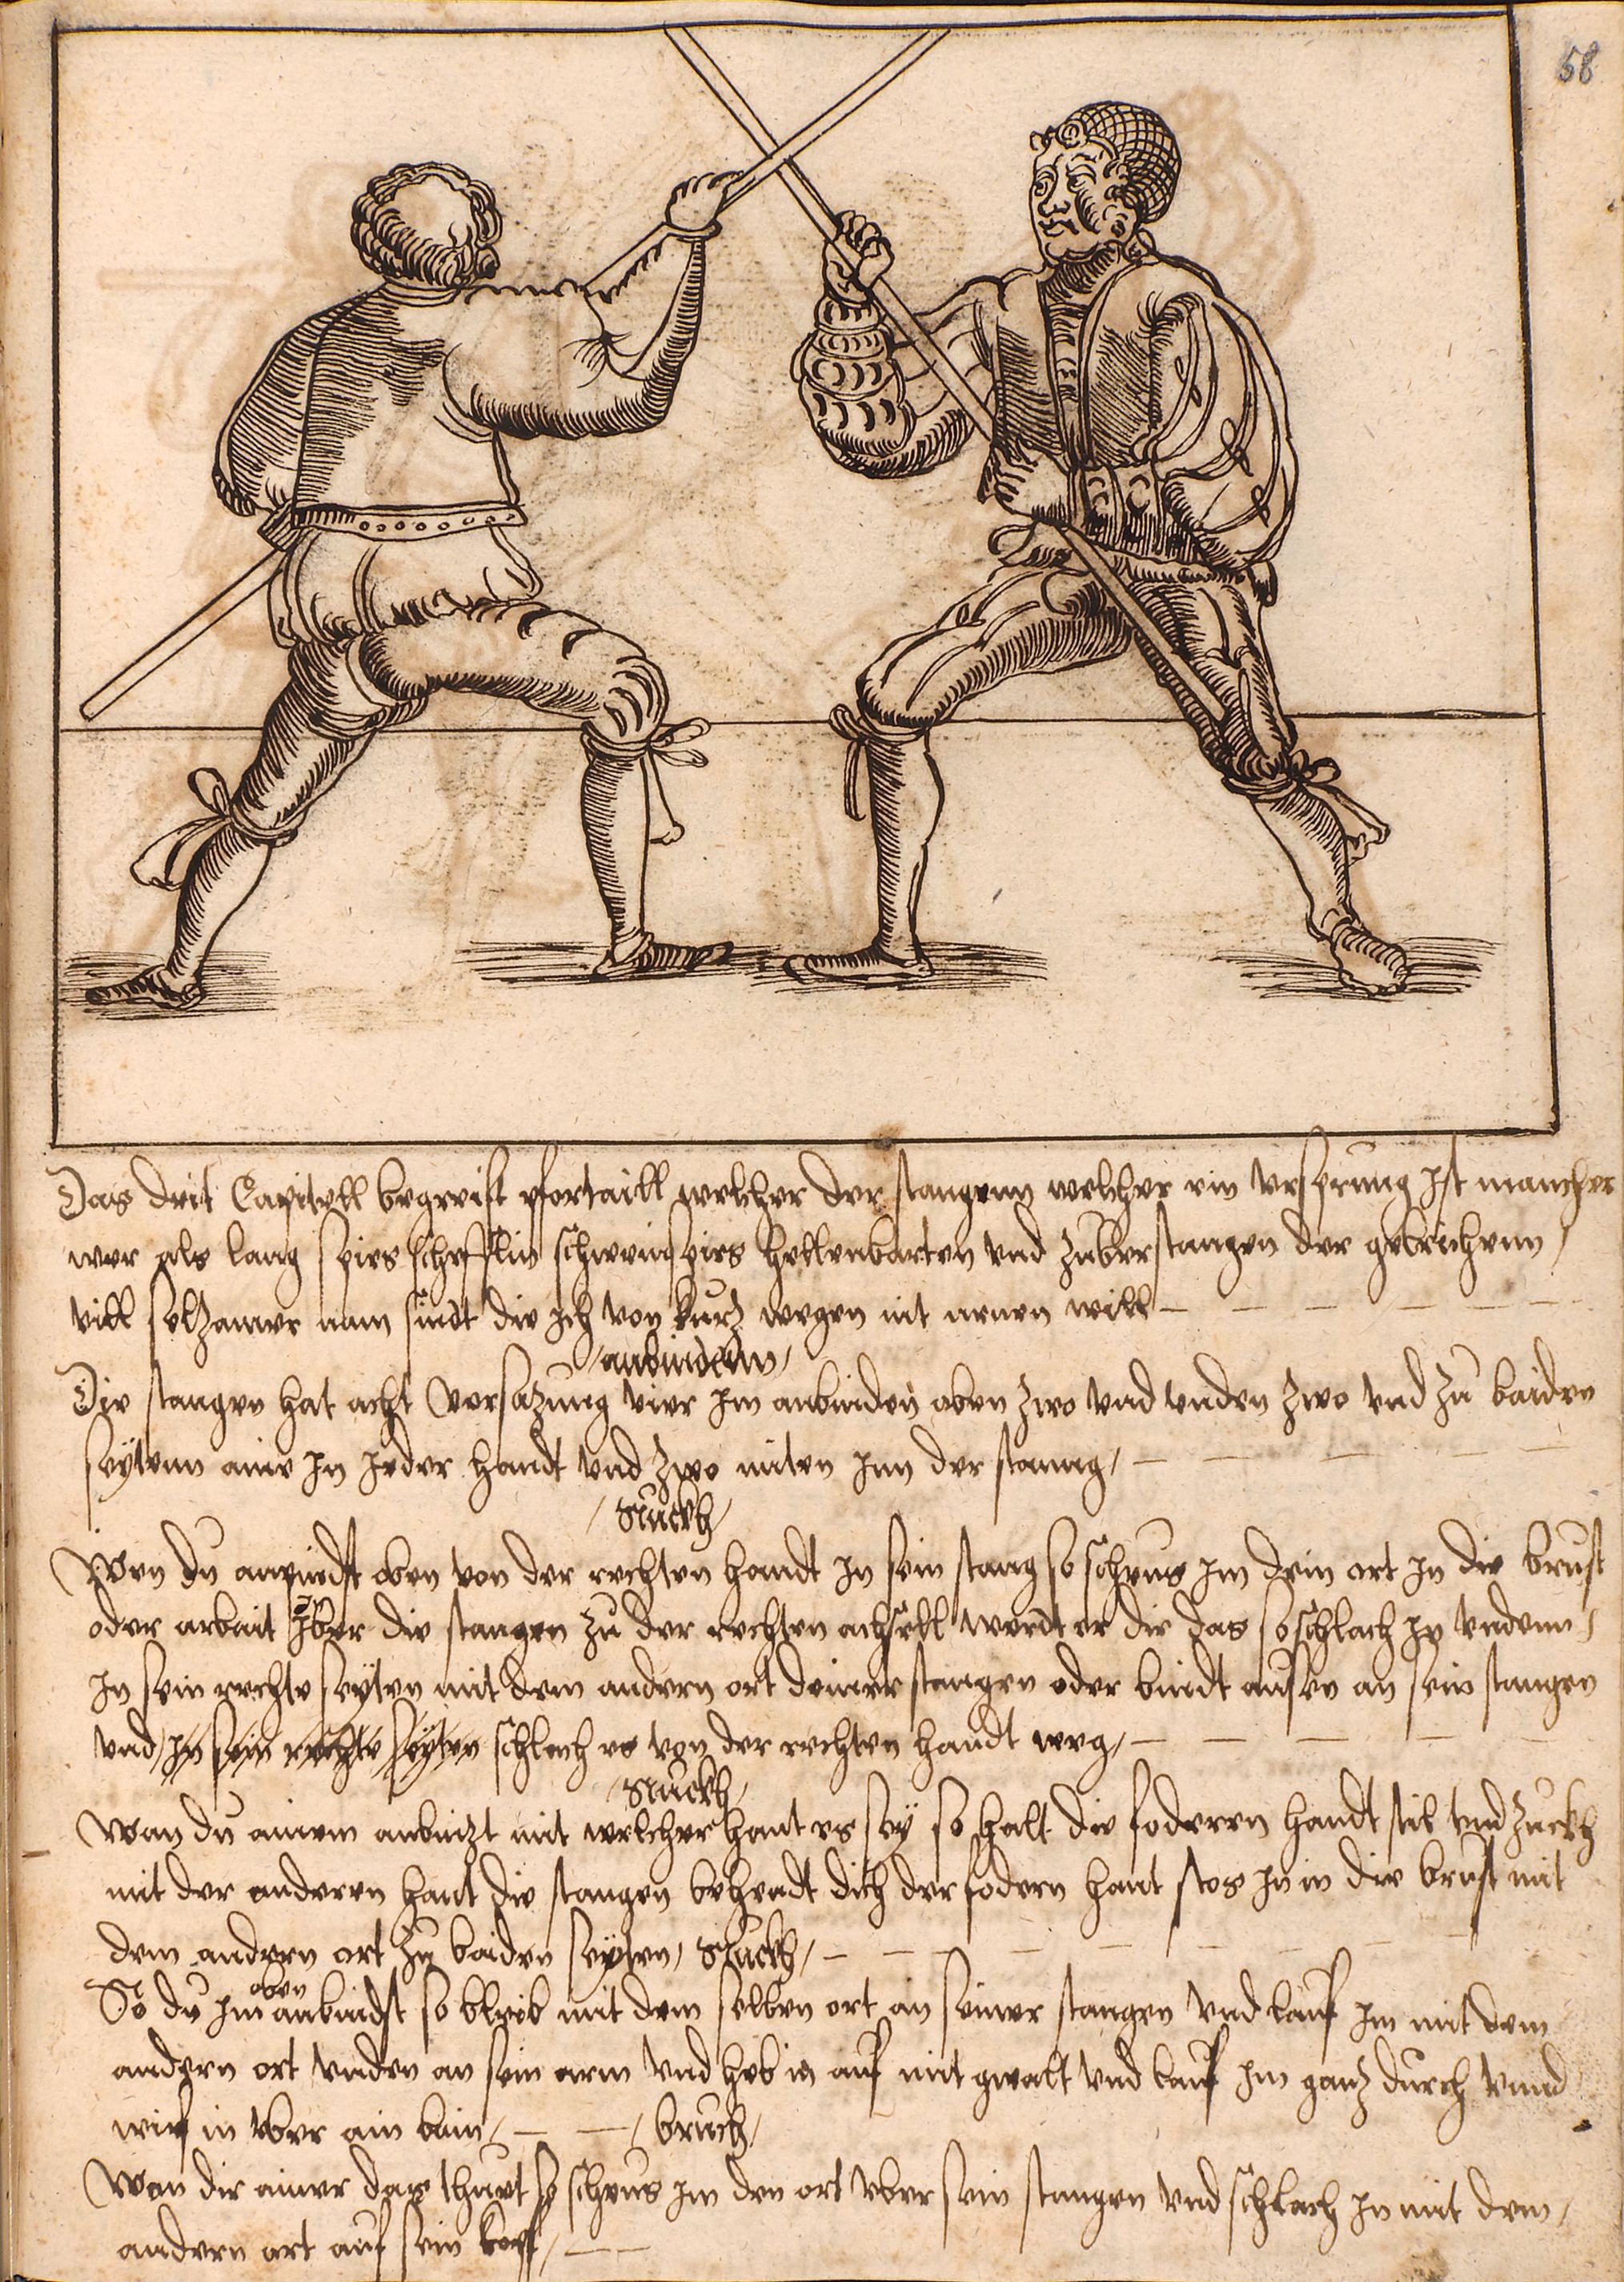 58
Das drit Capitell begreift vortaill welcher der stangenn welcher ein ursprung ist mancher
wer als lang spies scheflin schweinspies hellenbarten und zuberstangen der gebreichenn /
vill selzamer nam sindt die ich von kurz wegen nit nenen will
/ anbindenn /
Die stangen hat acht versazung vier im anbinden oben zwo und unden zwo und zu baiden
seÿtenn aine in ieder handt und zwo miten inn der stanng /
/ stuckh /
Wen du anpindst oben von der rechten handt in sein stang so scheus im dein ort in die brust
oder arbait iber die stangen zu der rechten achsell werdt er dir das so schlach in undenn /
in sein rechte seÿten mit dem andern ort deiner stangen oder bindt ausen an sein stangen
und in sein rechte seÿten schlach es von der rechten handt weg /
/ stuckh /
Wan du ainem anbinzt mit welcher hant es seÿ so halt die foderen handt stil und zuckh
mit der anderen hant die stangen behendt dich der fodern hant stos in in die brust mit
dem andern ort zu baiden seÿten / stuckh /
So du im oben anbindst so bleib mit dem selben ort an seiner stangen und lauf im mit dem
andern ort unden an sein arm und heb in auf mit gwalt und lauf im ganz durch unnd
wirf in uber ain bain / / bruch /
Wan dir ainer das thuet so scheus im den ort uber sein stangen und schlach in mit dem /
andern ort auf sein kopf /